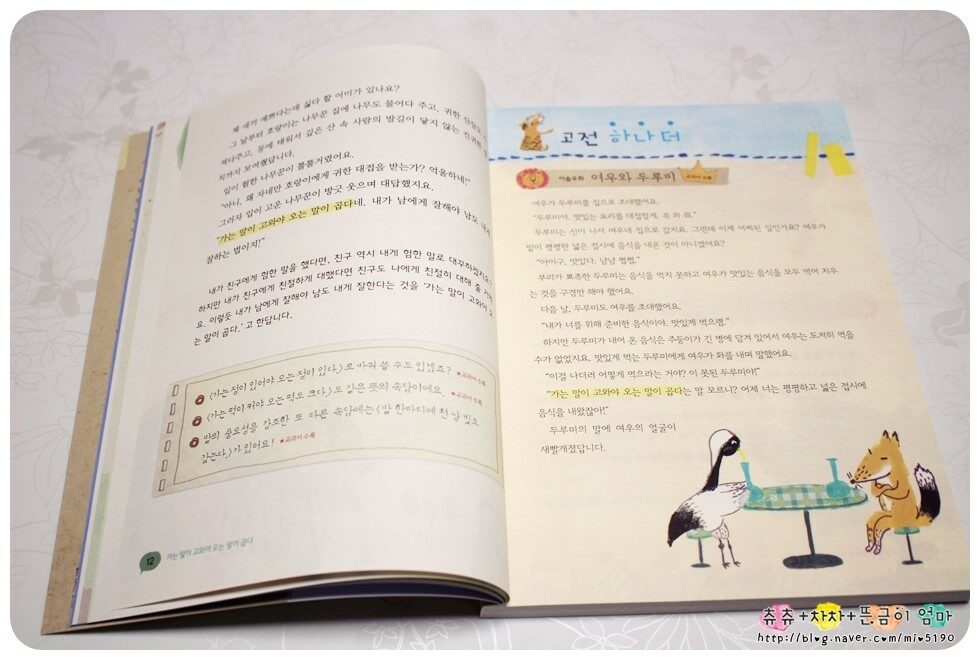 제 새끼 예쁘다는데 싫다 할 어미가 있나요?
그 날부터 호랑이는 나무꾼 집에 나무도 물어다 주고, 귀한 산삼도
져다주고, 등에 태워서 깊은 산 속 사람의 발길이 닿지 않는 진귀한
치까지 보여줬답니다.
입이 험한 나무꾼이 툴툴거렸어요.
"아니, 왜 자네만 호랑이에게 귀한 대접을 받는가? 억울하네!"
그러자 입이 고운 나무꾼이 방긋 웃으며 대답했지요.
"가는 말이 고와야 오는 말이 곱다네. 내가 남에게 잘해야 남도 내게
잘하는 법이지!"
내가 친구에게 험한 말을 했다면, 친구 역시 내게 험한 말로 대꾸하겠지요?
하지만 내가 친구에게 친절하게 대했다면 친구도 나에게 친절히 대해 줄
요. 이렇듯 내가 남에게 잘해야 남도 내게 잘한다는 것을 '가는 말이 고와야 오
는 말이 곱다.' 고 한답니다.
〈가는 정이 있어야 오는 정이 있다.〉로 바꿔 쓸 수도 있겠죠? ★교과서 수록
〈가는 떡이 커야 오는 떡도 크다.〉도 같은 뜻의 속담이에요. ★교과서 수록
말의 중요성을 강조한 또 다른 속담에는 〈말 한마디에 천 냥 빚도
갚는다.〉가 있어요! ★교과서 수록
12 가는 말이 고와야 오는 말이 곱다
고전 하나 더
이솝우화 여우와 두루미 교과서 수록
여우가 두루미를 집으로 초대했어요.
"두루미야. 맛있는 요리를 대접할게. 꼭 와 줘."
두루미는 신이 나서 여우네 집으로 갔지요. 그런데 이게 어찌된 일인가요? 여우가
밑이 평평한 넓은 접시에 음식을 내온 것이 아니겠어요?
"아이구, 맛있다. 냠냠 쩝쩝."
부리가 뾰족한 두루미는 음식을 먹지 못하고 여우가 맛있는 음식을 모두 먹어 치우
는 것을 구경만 해야 했어요.
다음 날, 두루미도 여우를 초대했어요.
"내가 너를 위해 준비한 음식이야. 맛있게 먹으렴."
하지만 두루미가 내어 온 음식은 주둥이가 긴 병에 담겨 있어서 여우는 도저히 먹을
수가 없었지요. 맛있게 먹는 두루미에게 여우가 화를 내며 말했어요.
"이걸 나더러 어떻게 먹으라는 거야? 이 못된 두루미야!"
"가는 말이 고와야 오는 말이 곱다는 말 모르니? 어제 너는 평평하고 넓은 접시에
음식을 내왔잖아!"
두루미의 말에 여우의 얼굴이
새빨개졌답니다.
츄츄+차차+뜬금이 엄마
http://blog.naver.com/mi05190